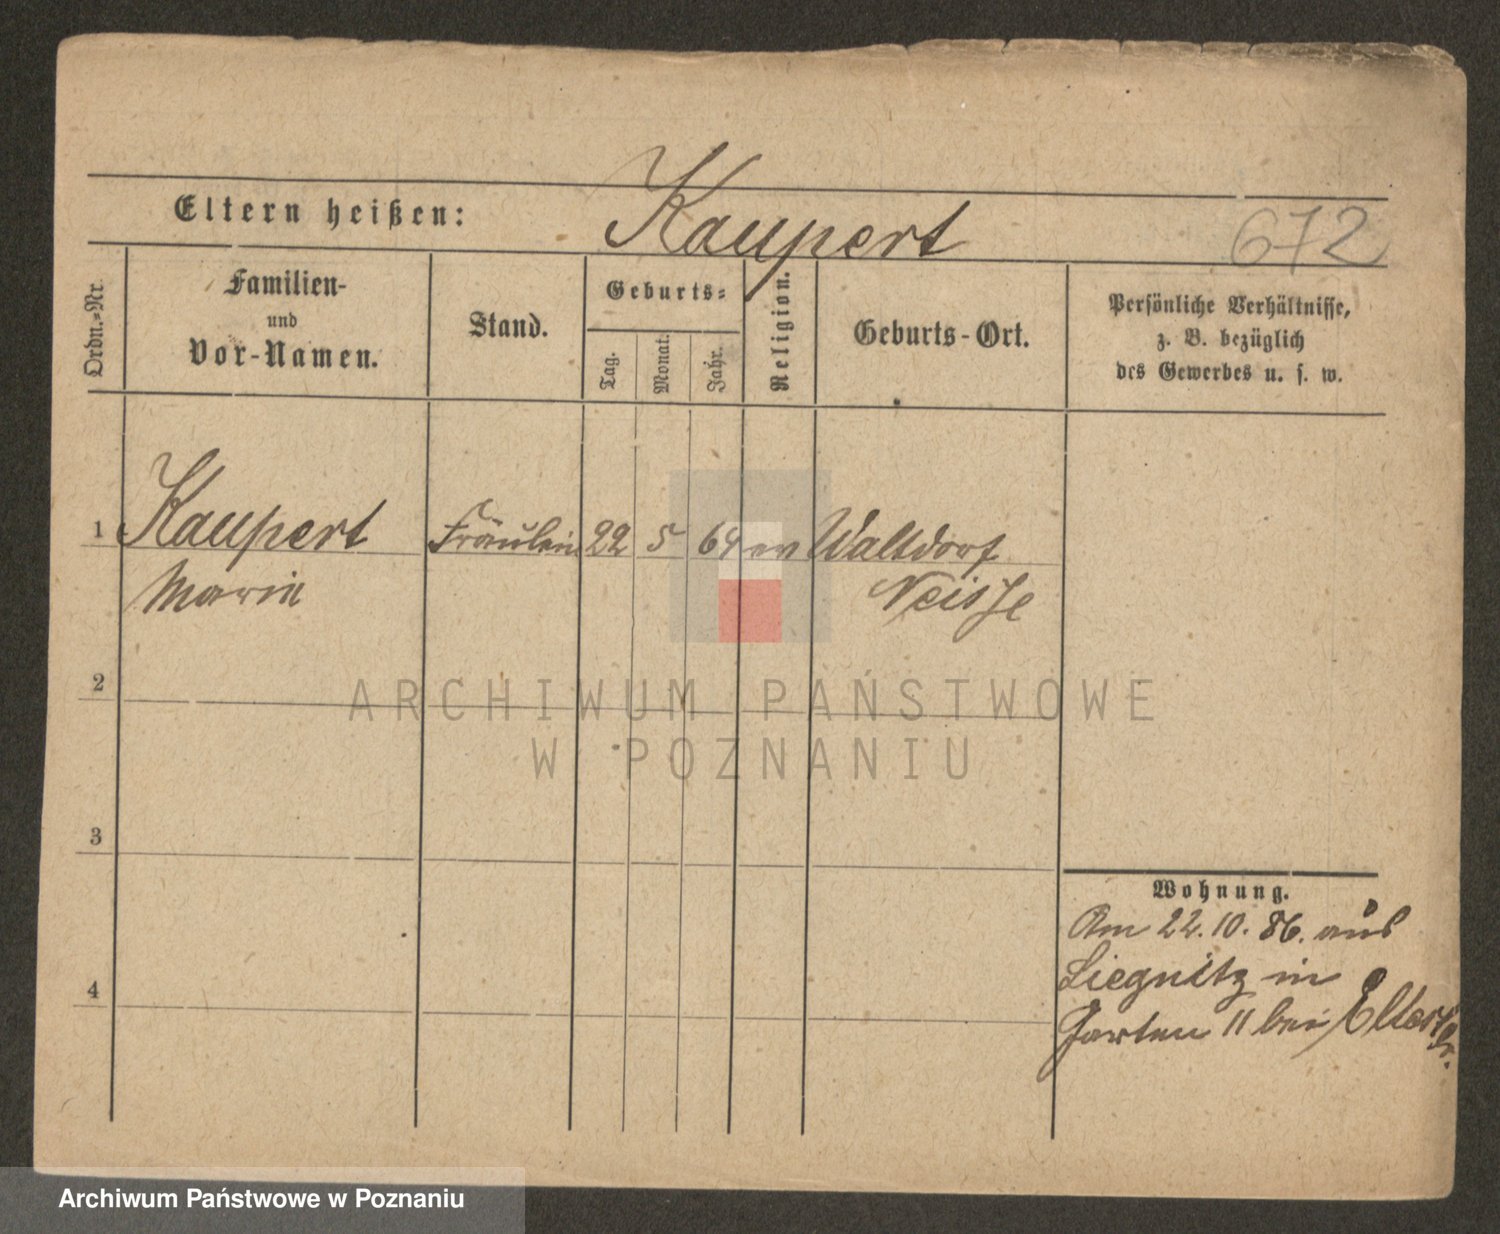 Eltern heißen: Kaupert 672
Ordn.=Nr.
Familien-
und
Vor-Namen.
Stand.
Geburts=
Tag.
Monat.
Jahr.
Religion.
Geburts-Ort.
Persönliche Verhältnisse,
z. B. bezüglich
des Gewerbes u. s. w.
1 Kaupert Fräulein 22 5 64 ev Waltdorf
Marie Neisse
2
ARCHIWUM PAŃSTWOWE
W POZNANIU
3
Wohnung.
Am 22.10.86. aus
Liegnitz in
4
Garten 11 bei
Archiwum Państwowe w Poznaniu